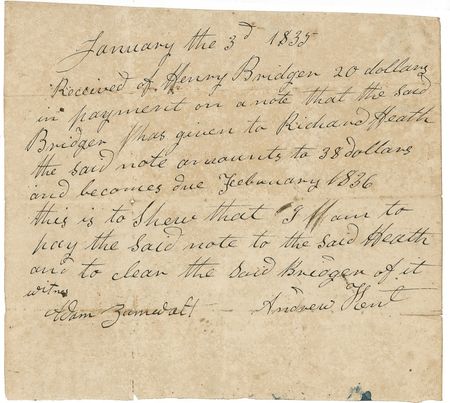 January the 3d 1835
Received of Henry Bridger 20 dollars
in payment on a note that the said
Bridger has given to Richard Heath
the said note amounts to 38 dollars
and becomes due Febuuary 1836
this is to Shew that I am to
pay the Said note to the said Heath
and to clear the Said Bridger of it
witns
Adam Zumwalt Andrew Kent